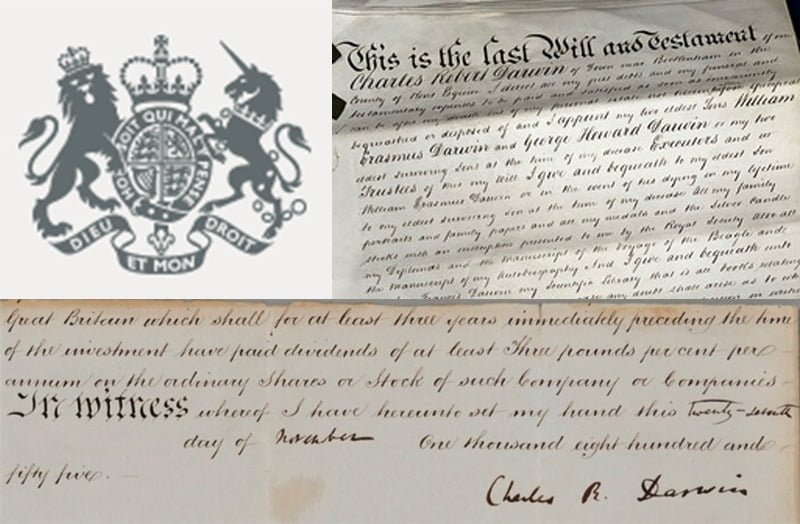 HONI SOIT QUI MAL Y PENSE
DIEU ET MON DROIT
This is the last Will and Testament of me
Charles Robert Darwin of Down near Beckenham in the
County of Kent Esquire I direct all my just debts and my funeral and
testamentary expenses to be paid and satisfied as soon as conveniently
can be after my death out of my personal estate not
bequeathed or disposed of and I appoint my two eldest Sons William
Erasmus Darwin and George Howard Darwin or my two
eldest surviving Sons at the time of my decease Executors and
Trustees of this my Will I give and bequeath to my eldest Son
William Erasmus Darwin or in the event of his dying in my lifetime
to my eldest surviving Son at the time of my decease all my family
portraits and family papers and all my medals and the Silver Candle
sticks with an inscription presented to me by the Royal Society also all
my Diplomas and the manuscript of the Voyage of the Beagle and
the manuscript of my Autobiography And I give and bequeath unto
Francis Darwin my Scientific Library that is all books relating
Great Britain which shall for at least three years immediately preceding the time
of the investment have paid dividends of at least Three pounds per cent per
annum on the ordinary Shares or Stock of such Company or Companies
In witness whereof I have hereunto set my hand this twenty-seventh
day of November One thousand eight hundred and
fifty five.
Charles R. Darwin